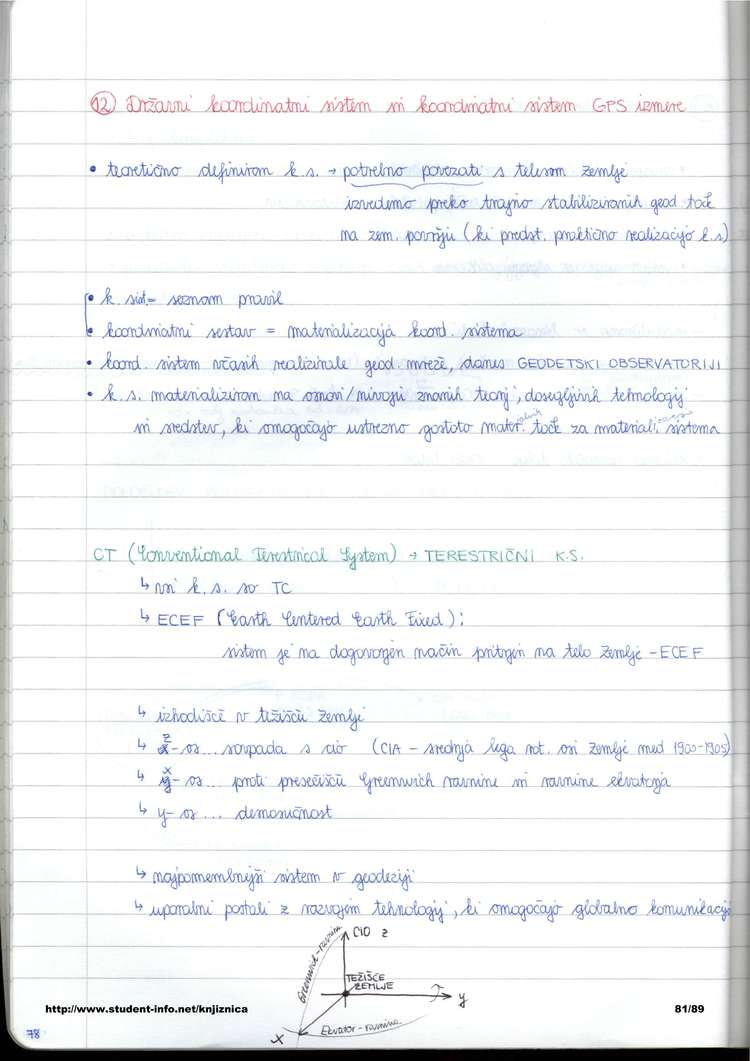 12 Državni koordinatni sistem in koordinatni sistem GPS izmere
• teoretično definiran k.s. → potrebno povezati s telesom zemlje
izvedemo preko trajno stabiliziranih geod točk
na zem. površju (ki predst. praktično realizacijo k.s)
• k. sist. = seznam pravil
• koordinatni sestav = materializacija koord. sistema
• koord. sistem včasih realizirale geod. mreže, danes GEODETSKI OBSERVATORIJI
• k.s. materializiran na osnovi/nivoju znanih teorij, dosegljivih tehnologij
in sredstev, ki omogočajo ustrezno gostoto mater. točk za materiali. sistema
CT (Conventional Terestrical System) → TERESTRIČNI K.S.
↳ vsi k.s. so TC
↳ ECEF (Earth Centered Earth Fixed):
sistem je na dogovorjen način pritrjen na telo Zemlje - ECEF
↳ izhodišče v težišču Zemlje
↳ z - os... sovpada s cio (CIA - srednja lega rot. osi Zemlje med 1900-1905)
↳ x - os... proti presečišču Greenwich ravnine in ravnine ekvatorja
↳ y - os ... desnosučnost
↳ najpomembnejši sistem v geodeziji
↳ uporabni postali z razvojem tehnologij, ki omogočajo globalno komunikacijo
CIO z
Greenwich-ravnina
TEŽIŠČE
ZEMLJE
y
Ekvator-ravnina
x
http://www.student-info.net/knjiznica
81/89
78